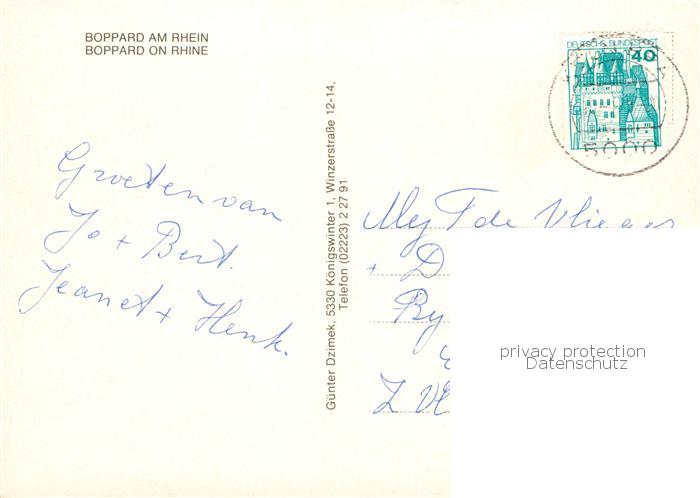 BOPPARD AM RHEIN
BOPPARD ON RHINE
DEUTSCHE BUNDESPOST
40
Groeten van
Jo + Bert.
Jeanet + Henk.
Günter Dzimek, 5330 Königswinter 1, Winzerstraße 12-14,
Telefon (02223) 2 27 91
Mej T de Vlieger
+ D
By
Z Vl
privacy protection
Datenschutz